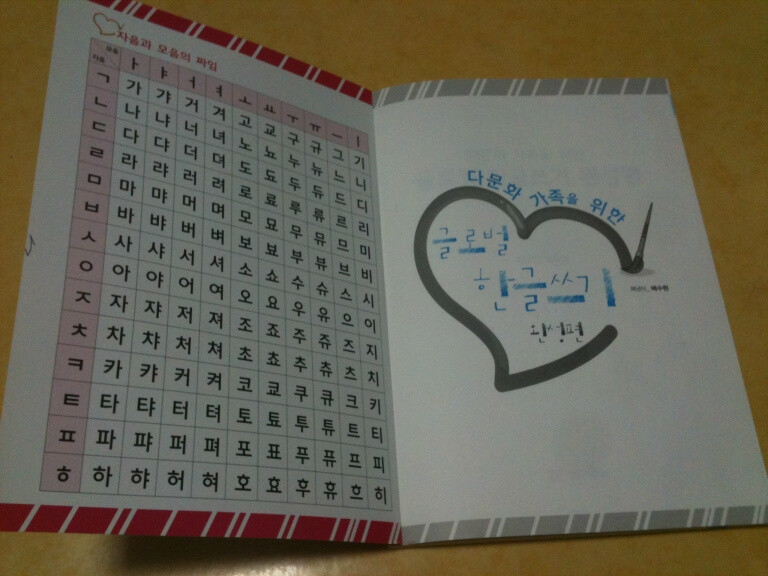 자음과 모음의 짜임
모음
자음
ㅏ ㅑ ㅓ ㅕ ㅗ ㅛ ㅜ ㅠ ㅡ ㅣ
ㄱ 가 갸 거 겨 고 교 구 규 그 기
ㄴ 나 냐 너 녀 노 뇨 누 뉴 느 니
ㄷ 다 댜 더 뎌 도 됴 두 듀 드 디
ㄹ 라 랴 러 려 로 료 루 류 르 리
ㅁ 마 먀 머 며 모 묘 무 뮤 므 미
ㅂ 바 뱌 버 벼 보 뵤 부 뷰 브 비
ㅅ 사 샤 서 셔 소 쇼 수 슈 스 시
ㅇ 아 야 어 여 오 요 우 유 으 이
ㅈ 자 쟈 저 져 조 죠 주 쥬 즈 지
ㅊ 차 챠 처 쳐 초 쵸 추 츄 츠 치
ㅋ 카 캬 커 켜 코 쿄 쿠 큐 크 키
ㅌ 타 탸 터 텨 토 툐 투 튜 트 티
ㅍ 파 퍄 퍼 펴 포 표 푸 퓨 프 피
ㅎ 하 햐 허 혀 호 효 후 휴 흐 히
다문화 가족을 위한
글로벌
한글쓰기
완성편